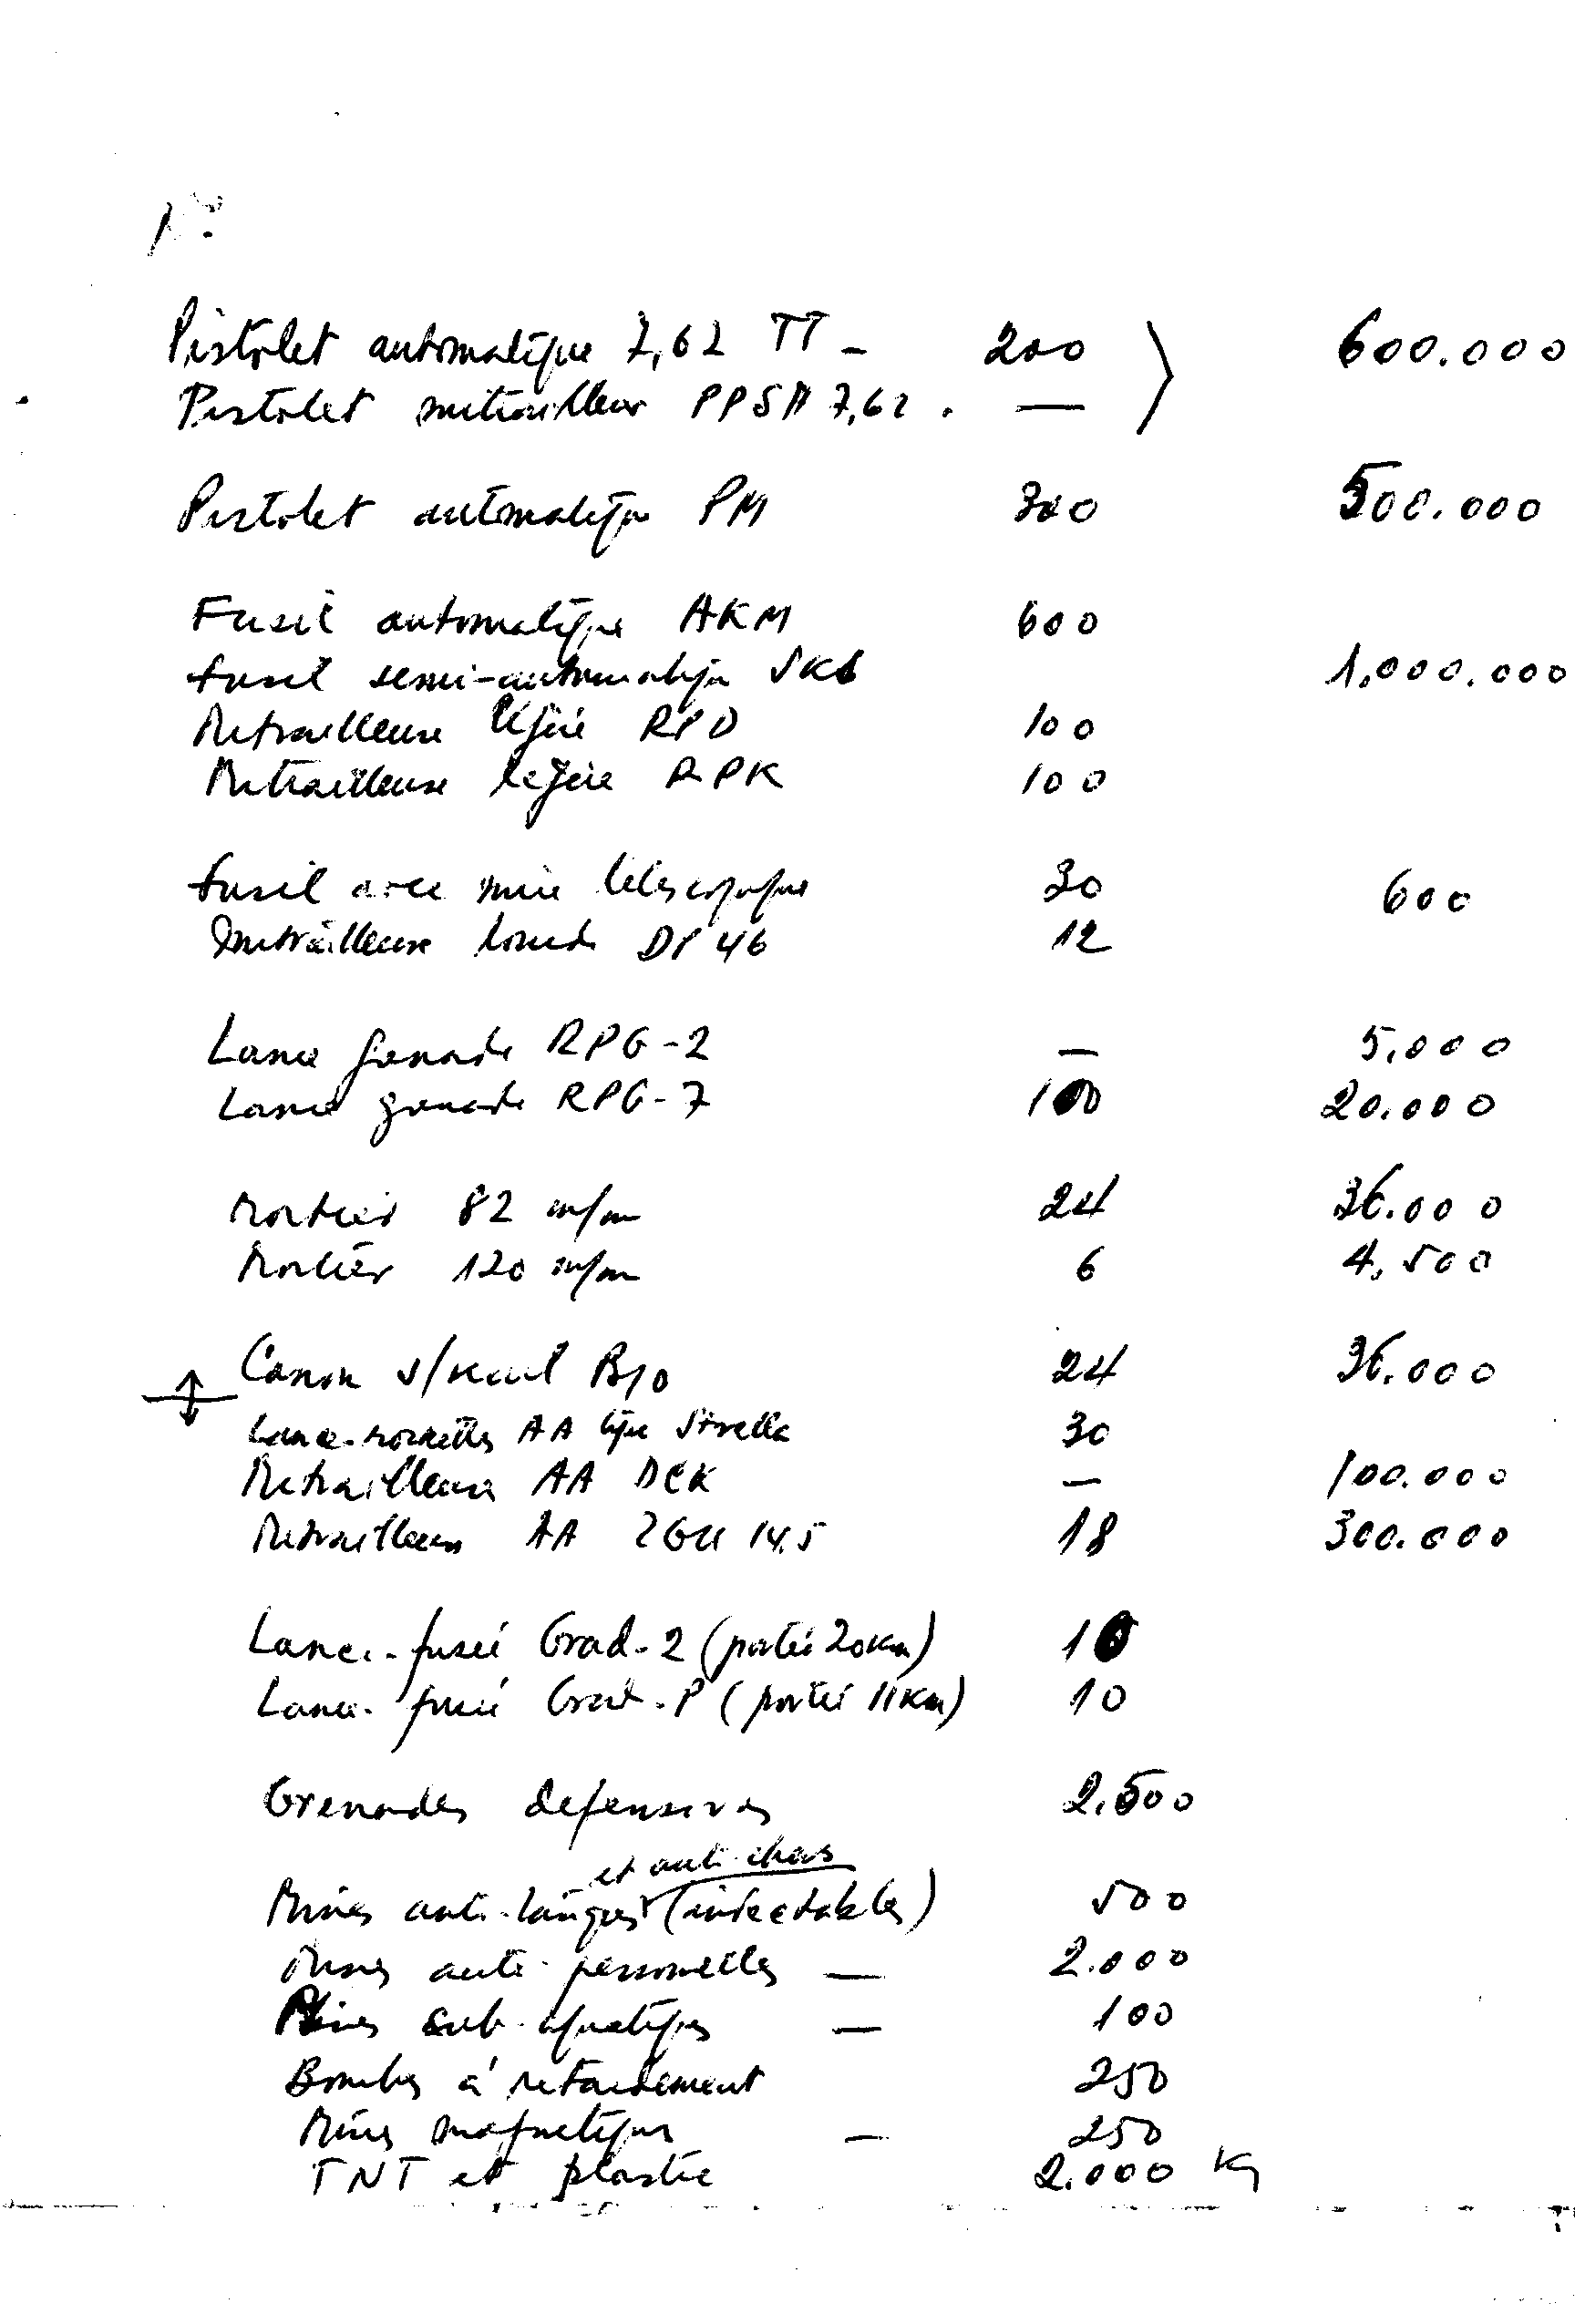 Pistolet automatique 7,62 TT - 200 600.000
Pistolet mitrailleur PPSH 7,62. —
Pistolet automatique PM 300 500.000
Fusil automatique AKM 600
Fusil semi-automatique SKS 1.000.000
Mitrailleuse légère RPD 100
Mitrailleuse légère RPK 100
Fusil avec mire télescopique 30 600
Mitrailleuse lourde DP 46 12
Lance grenade RPG-2 — 5.000
Lance grenade RPG-7 100 20.000
Mortier 82 m/m 24 36.000
Mortier 120 m/m 6 4.500
Canon s/recul B10 24 36.000
Lance-roquettes AA type Strella 30
Mitrailleuse AA DCK — 100.000
Mitrailleuse AA ZGU 14.5 18 300.000
Lance-fusée Grad-2 (portée 20Km) 10
Lance-fusée Grad-P (portée 11Km) 10
Grenades defensives 2.500
et anti-chars
Mines anti-tanques (indectables) 500
Mines anti-personelles — 2.000
Mines sub-aquatiques — 100
Bombes à retardement 250
Mines magnetiques — 250
TNT et plastic 2.000 Kg